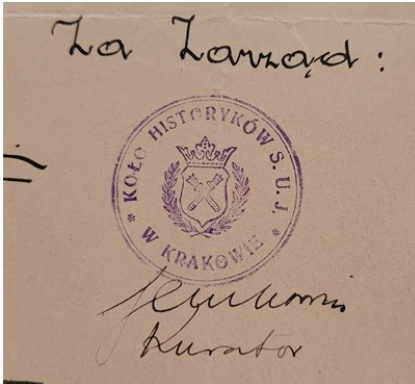 Za Zarząd:
KOŁO HISTORYKÓW S. U. J.
W KRAKOWIE
Kurator